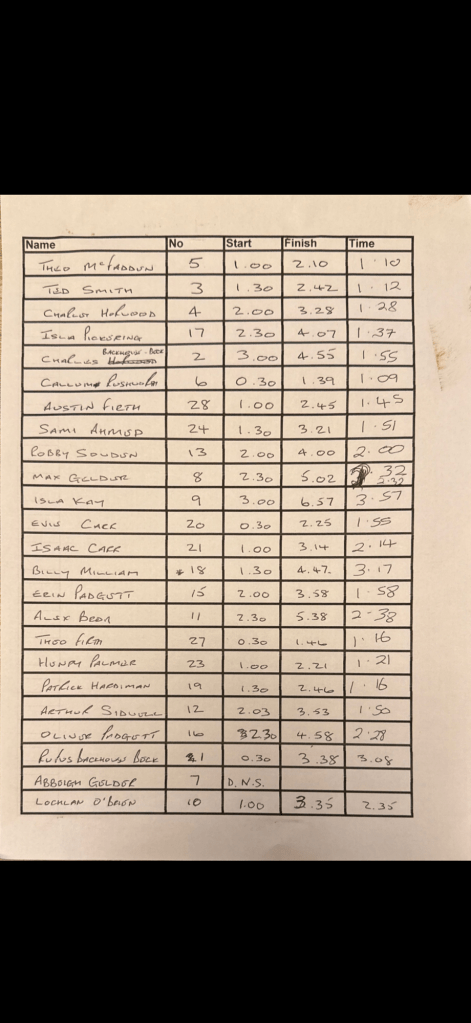 Name No Start Finish Time
THEO McFADDEN 5 1.00 2.10 1.10
TED SMITH 3 1.30 2.42 1.12
CHARLES HOPWOOD 4 2.00 3.28 1.28
ISLA PICKERING 17 2.30 4.07 1.37
CHARLES BACKHOUSE-BOCK 2 3.00 4.55 1.55
CALLUM 6 0.30 1.39 1.09
AUSTIN FIRTH 28 1.00 2.45 1.45
SAMI AHMED 24 1.30 3.21 1.51
BOBBY SOWDEN 13 2.00 4.00 2.00
MAX GELDER 8 2.30 5.02 32 2.32
ISLA KAY 9 3.00 6.57 3.57
EVIE CARR 20 0.30 2.25 1.55
ISAAC CARR 21 1.00 3.14 2.14
BILLY MILLIAM * 18 1.30 4.47. 3.17
ERIN PADGETT 15 2.00 3.58 1.58
ALEX 11 2.30 5.38 2-38
THEO FIRTH 27 0.30 1.46 1.16
HENRY PALMER 23 1.00 2.21 1.21
PATRICK HARDIMAN 19 1.30 2.46 1.16
ARTHUR SIDWELL 12 2.03 3.53 1.50
OLIVER PADGETT 16 2.30 4.58 2.28
Rufus BACKHOUSE BOCK 1 0.30 3.38 3.08
ABBEIGH GELDER 7 D.N.S.
LOCHLAN O'BRIEN 10 1.00 3.35 2.35